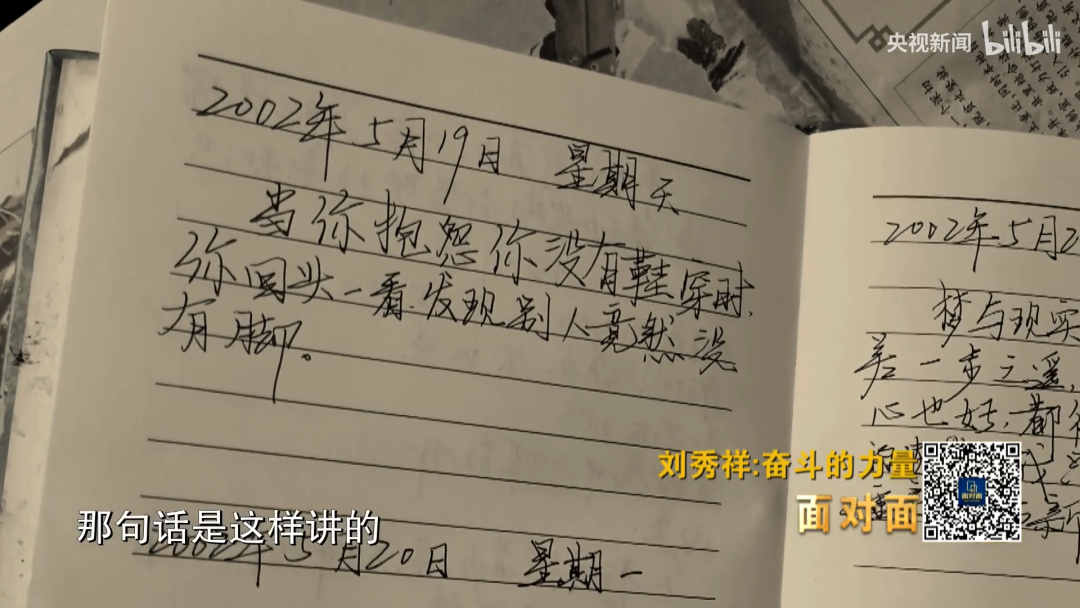 央视新闻 bilibili
2002年5月19日 星期天
当你抱怨你没有鞋穿时,
你回头一看,发现别人竟然没
有脚。
2002年5月20日 星期一
2002年5月2
梦与现实
差一步之遥,
心也好,都
刘秀祥:奋斗的力量
面对面
那句话是这样讲的